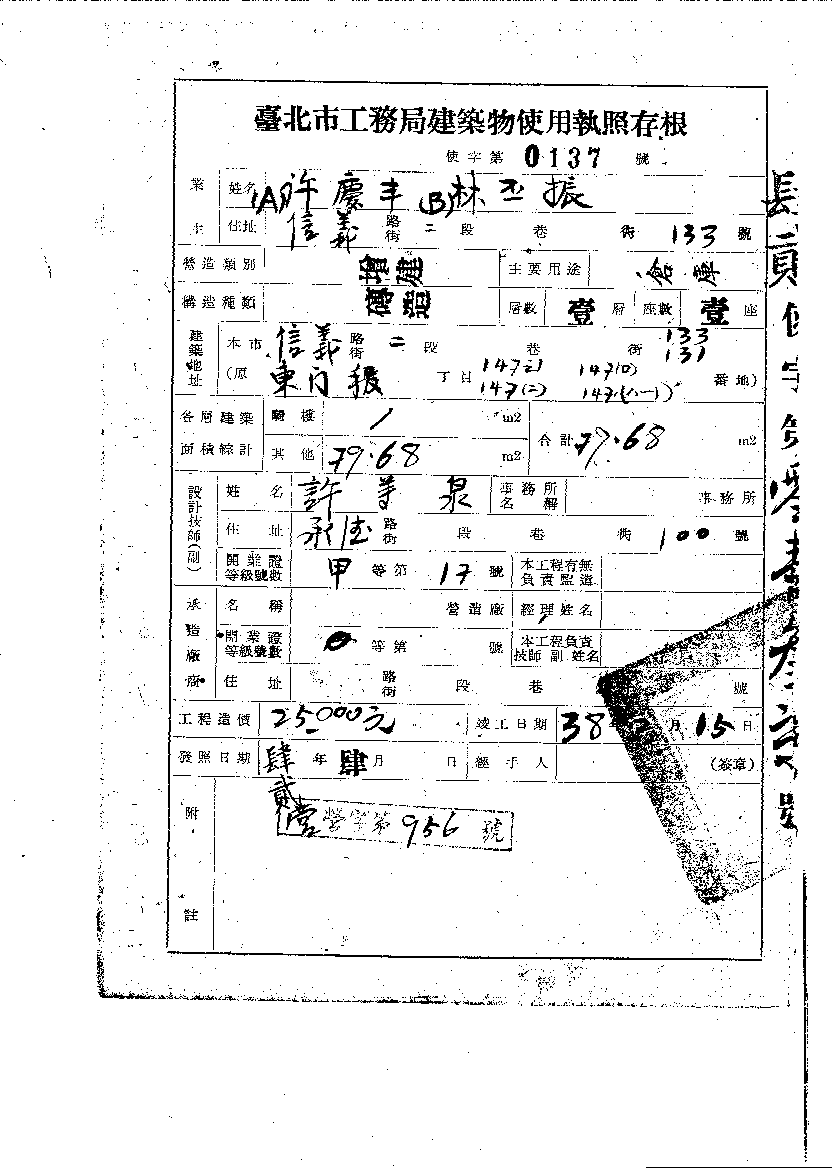 臺北市工務局建築物使用執照存根
使字第 0137 號
業主 姓名 (A)許慶丰 (B)林丕振
住址 信義路街二段 巷 街 133 號
營造類別 增建 主要用途 倉庫
構造種類 磚造 層數 壹層 座數 壹座
建築地址 本市 信義路街二段 巷 街 133 131
(原 東門 丁目 147 147 番地)
147(二) 147
各層建築面積綜計 騎樓 / m2 合計 79.68 m2
其他 79.68 m2
設計技師(副) 姓名 許 泉 事務所名稱 事務所
住址 承德路街 段 巷 街 100 號
開業證等級號數 甲等第 17 號 本工程有無負責監造
承造廠商 名稱 營造廠 經理姓名
開業證等級號數 等第 號 本工程負責技師副姓名
住址 路街 段 巷 號
工程造價 25,000元 竣工日期 38年 月 15日
發照日期 肆貳年 肆月 日 經手人 (簽章)
營字第 956 號
附註